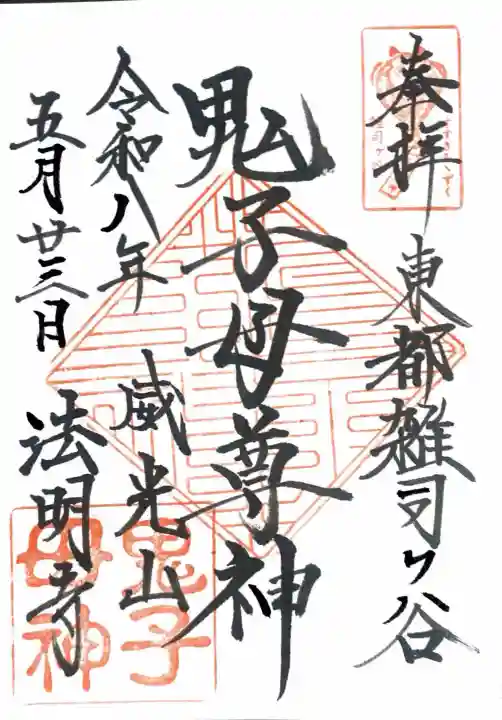 奉拝
東都雑司ヶ谷
鬼子母尊神
威光山
令和八年
五月廿三日
法明寺
鬼子
母神